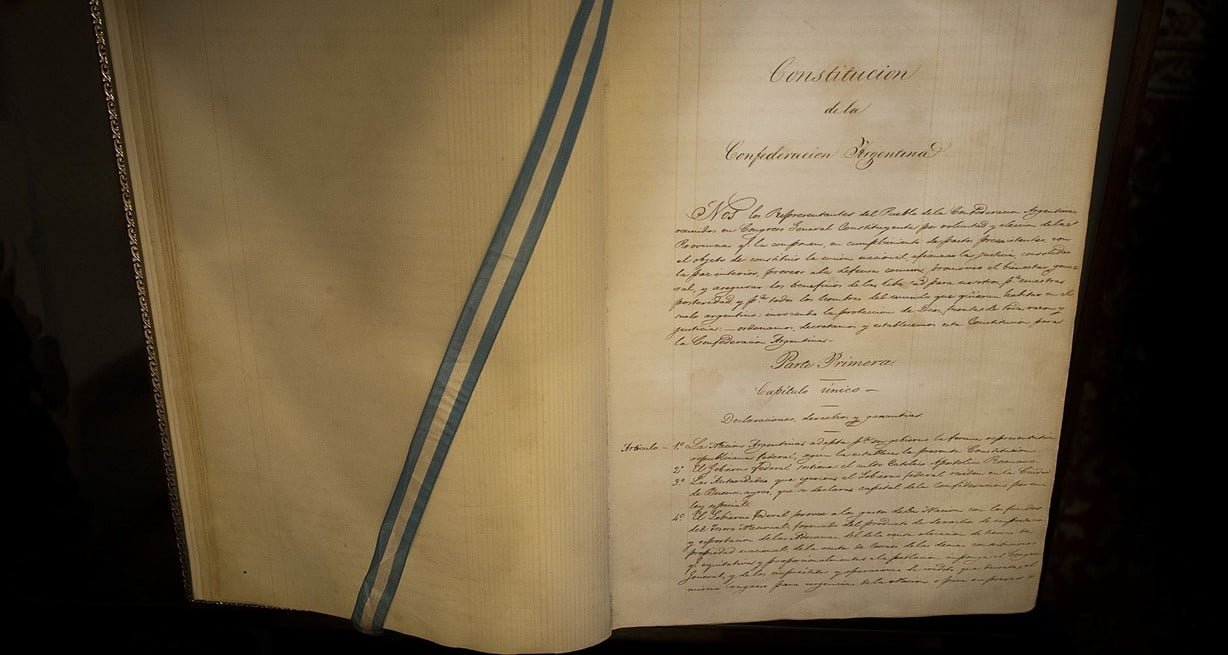 Constitucion
de la
Confederacion Argentina.
Nos los Representantes del Pueblo de la Confederacion Argentina,
reunidos en Congreso General Constituyente por voluntad y eleccion de las
Provincias qe. la componen, en cumplimiento de pactos preexistentes, con
el objeto de constituir la union nacional, afianzar la justicia, consolidar
la paz interior, proveer a la defensa comun, promover el bienestar gene=
ral, y asegurar los beneficios de la libertad para nosotros, pa. nuestra
posteridad y pa. todos los hombres del mundo que quieran habitar en el
suelo argentino: invocando la proteccion de Dios, fuente de toda razon y
justicia: — ordenamos, decretamos y establecemos esta Constitucion para
la Confederacion Argentina.—
Parte Primera
Capítulo único —
Declaraciones, derechos y garantias.
Artículo — 1º La Nacion Argentina adopta pa. su gobierno la forma representativa
republicana federal, segun la establece la presente Constitucion.
2º El Gobierno Federal sostiene el culto Católico Apostólico Romano.
3º Las Autoridades que ejercen el Gobierno federal residen en la Ciudad
de Buenos-ayres, que se declara capital de la Confederacion por una
ley especial.
4º El Gobierno Federal provee a los gastos de la Nacion con los fondos
del Tesoro Nacional, formado del producto de derechos de importacion
y esportacion de las Aduanas, del de la venta o locacion de tierras de
propiedad nacional, de la renta de Correos, de las demas contribuciones
qe. equitativa y proporcionalmente a la poblacion imponga el Congreso
General, y de los empréstitos y operaciones de crédito que decrete el
mismo Congreso para urgencias de la Nacion, o para empresas de